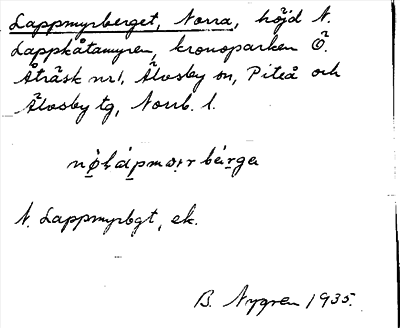 Lappmyrberget, Norra, höjd N.
Lappkåtamyren, kronoparken Ö.
Åträsk nr 1, Älvsby sn, Piteå och
Älvsby tg, Norrb. l.
N. Lappmyrbgt, ek.
B. Nygren 1935.